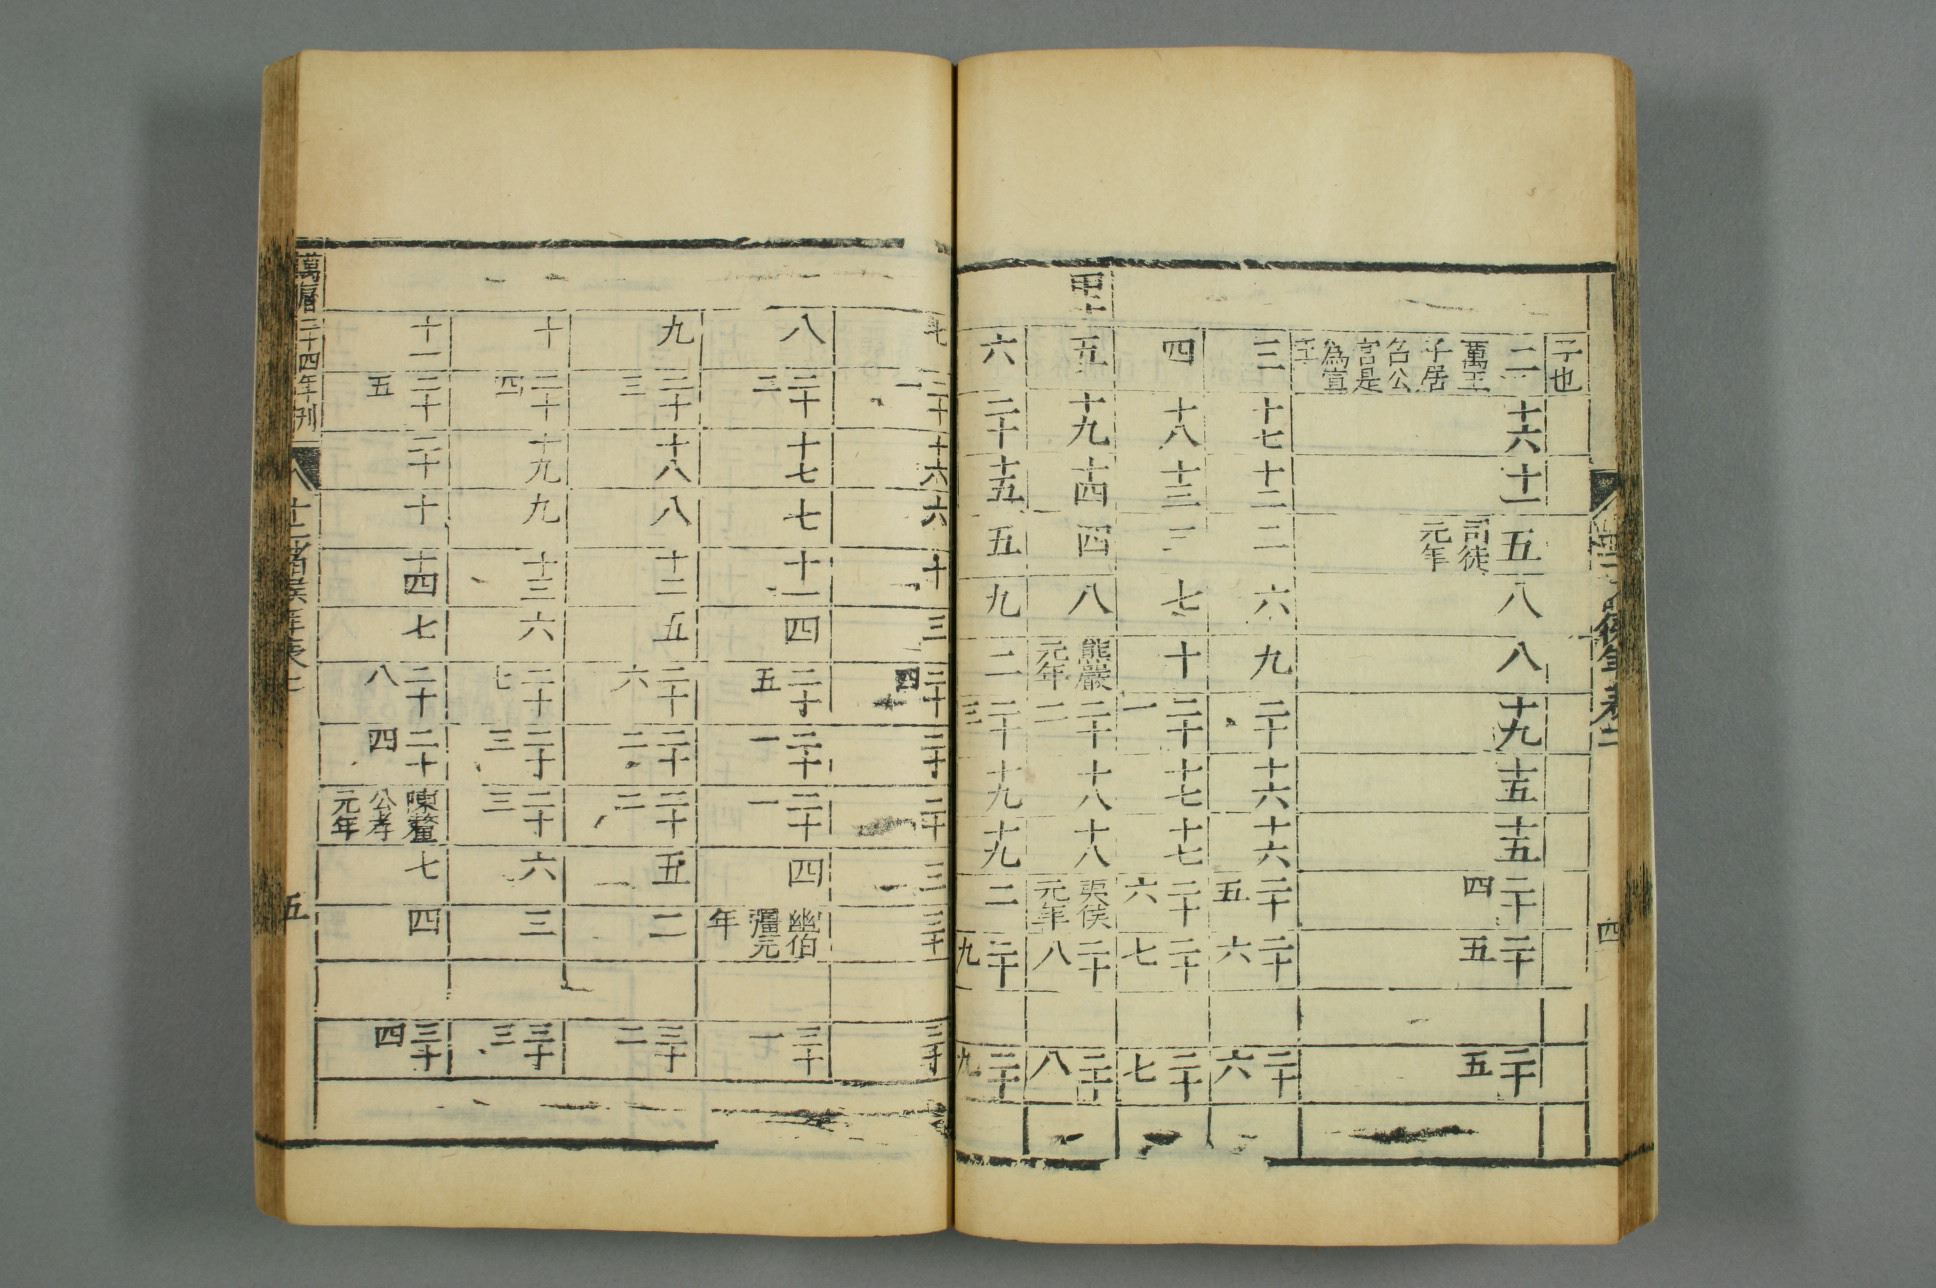 子也
二 厲王子居召公宮是為宣王 十六 十一 五 司徒元年 八 八 十九 十五 十五 二十四 二十五 二十五
三 十七 十二 二 六 九 二十 十六 十六 二十五 二十六 二十六
四 十八 十三 三 七 十 二十一 十七 十七 二十六 二十七 二十七
甲子 五 十九 十四 四 八 熊嚴元年 二十二 十八 十八 夷侯元年 二十八 二十八
六 二十 十五 五 九 二 二十三 十九 十九 二 二十九 二十九
四
七 二十一 十六 六 十 三 二十四 二十 二十 三 三十 三十
八 二十二 十七 七 十一 四 二十五 二十一 二十一 四 幽伯彊元年 三十一
九 二十三 十八 八 十二 五 二十六 二十二 二十二 五 二 三十二
十 二十四 十九 九 十三 六 二十七 二十三 二十三 六 三 三十三
十一 二十五 二十 十 十四 七 二十八 二十四 陳釐公孝元年 七 四 三十四
萬曆二十四年刊 十二諸侯年表 五